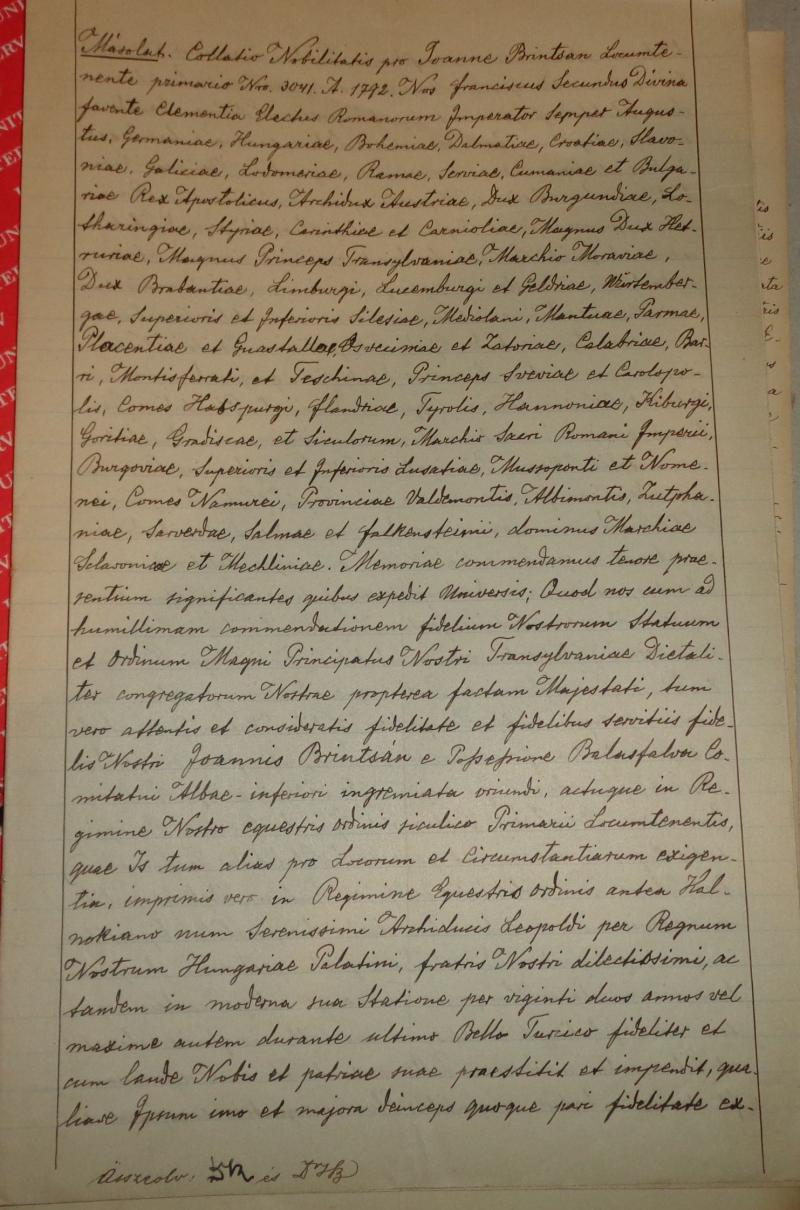 Másolat. Collatio Nobilitatis pro Joanne Brintsan Locumte-
nente primario Nro. 3041. A. 1792. Nos franciscus Secundus Divina
favente Clementia Electus Romanorum Imperator Semper Augus-
tus, Germaniae, Hungariae, Bohemiae, Dalmatiae, Croatiae, Slavo-
niae, Galiciae, Lodomeriae, Ramae, Serviae, Cumaniae et Bulga-
riae Rex Apostolicus, Archidux Austriae, Dux Burgundiae, Lo-
tharingiae, Styriae, Carinthiae et Carnioliae, Magnus Dux Het-
ruriae, Magnus Princeps Transylvaniae, Marchio Moraviae,
Dux Brabantiae, Limburgi, Lucemburgi et Geldriae, Würtember-
gae, Superioris et Inferioris Silesiae, Mediolani, Mantuae, Parmae,
Placentiae et Guastallae, Osveciniae et Zatoriae, Calabriae, Bar-
ri, Montisferrati, et Teschinae, Princeps Sveviae et Carolopo-
lis, Comes Habspurgi, flandriae, Tyrolis, Hannoniae, Kiburgi,
Goritiae, Gradiscae, et Siculorum, Marchio Sacri Romani Imperii,
Burgoviae, Superioris et Inferioris Lusatiae, Mussoponti et Nome-
nei, Comes Namurci, Provinciae Valdemontis, Albimontis, Zutpha-
niae, Sarverdae, Salmae et falkensteinii, dominus Marchiae
Sclavonicae et Mechliniae. Memoriae commendamus tenore prae-
sentium significantes quibus expedit Universis; Quod nos cum ad
humillimam commendationem fidelium Nostrorum Statuum
et Ordinum Magni Principatus Nostri Transylvaniae Dietali-
ter congregatorum Nostrae propterea factam Majestati, tum
vero attentis et consideratis fidelitate et fidelibus servitiis fide-
lis Nostri Joannis Brintsán e Possessione Balasfalva Co-
mitatui Albae-inferiori ingremiata oriundi, actuque in Re-
gimine Nostro equestris ordinis siculico Primarii Locumtenentis,
quae Is tum alias pro Locorum et Circumstantiarum exigen-
tia, imprimis vero in Regimine Equestris ordinis antea Kal-
nokiano num Serenissimi Archiducis Leopoldi per Regnum
Nostrum Hungariae Palatini, fratris Nostri dilectissimi, ac
tandem in moderna sua Statione per viginti duos annos vel
maxime autem durante ultimo Bello Turcico fideliter et
cum laude Nobis et patriae suae praestitit et impendit, qua-
liave Ipsum imo et majora deinceps quoque pari fidelitate ex-
és